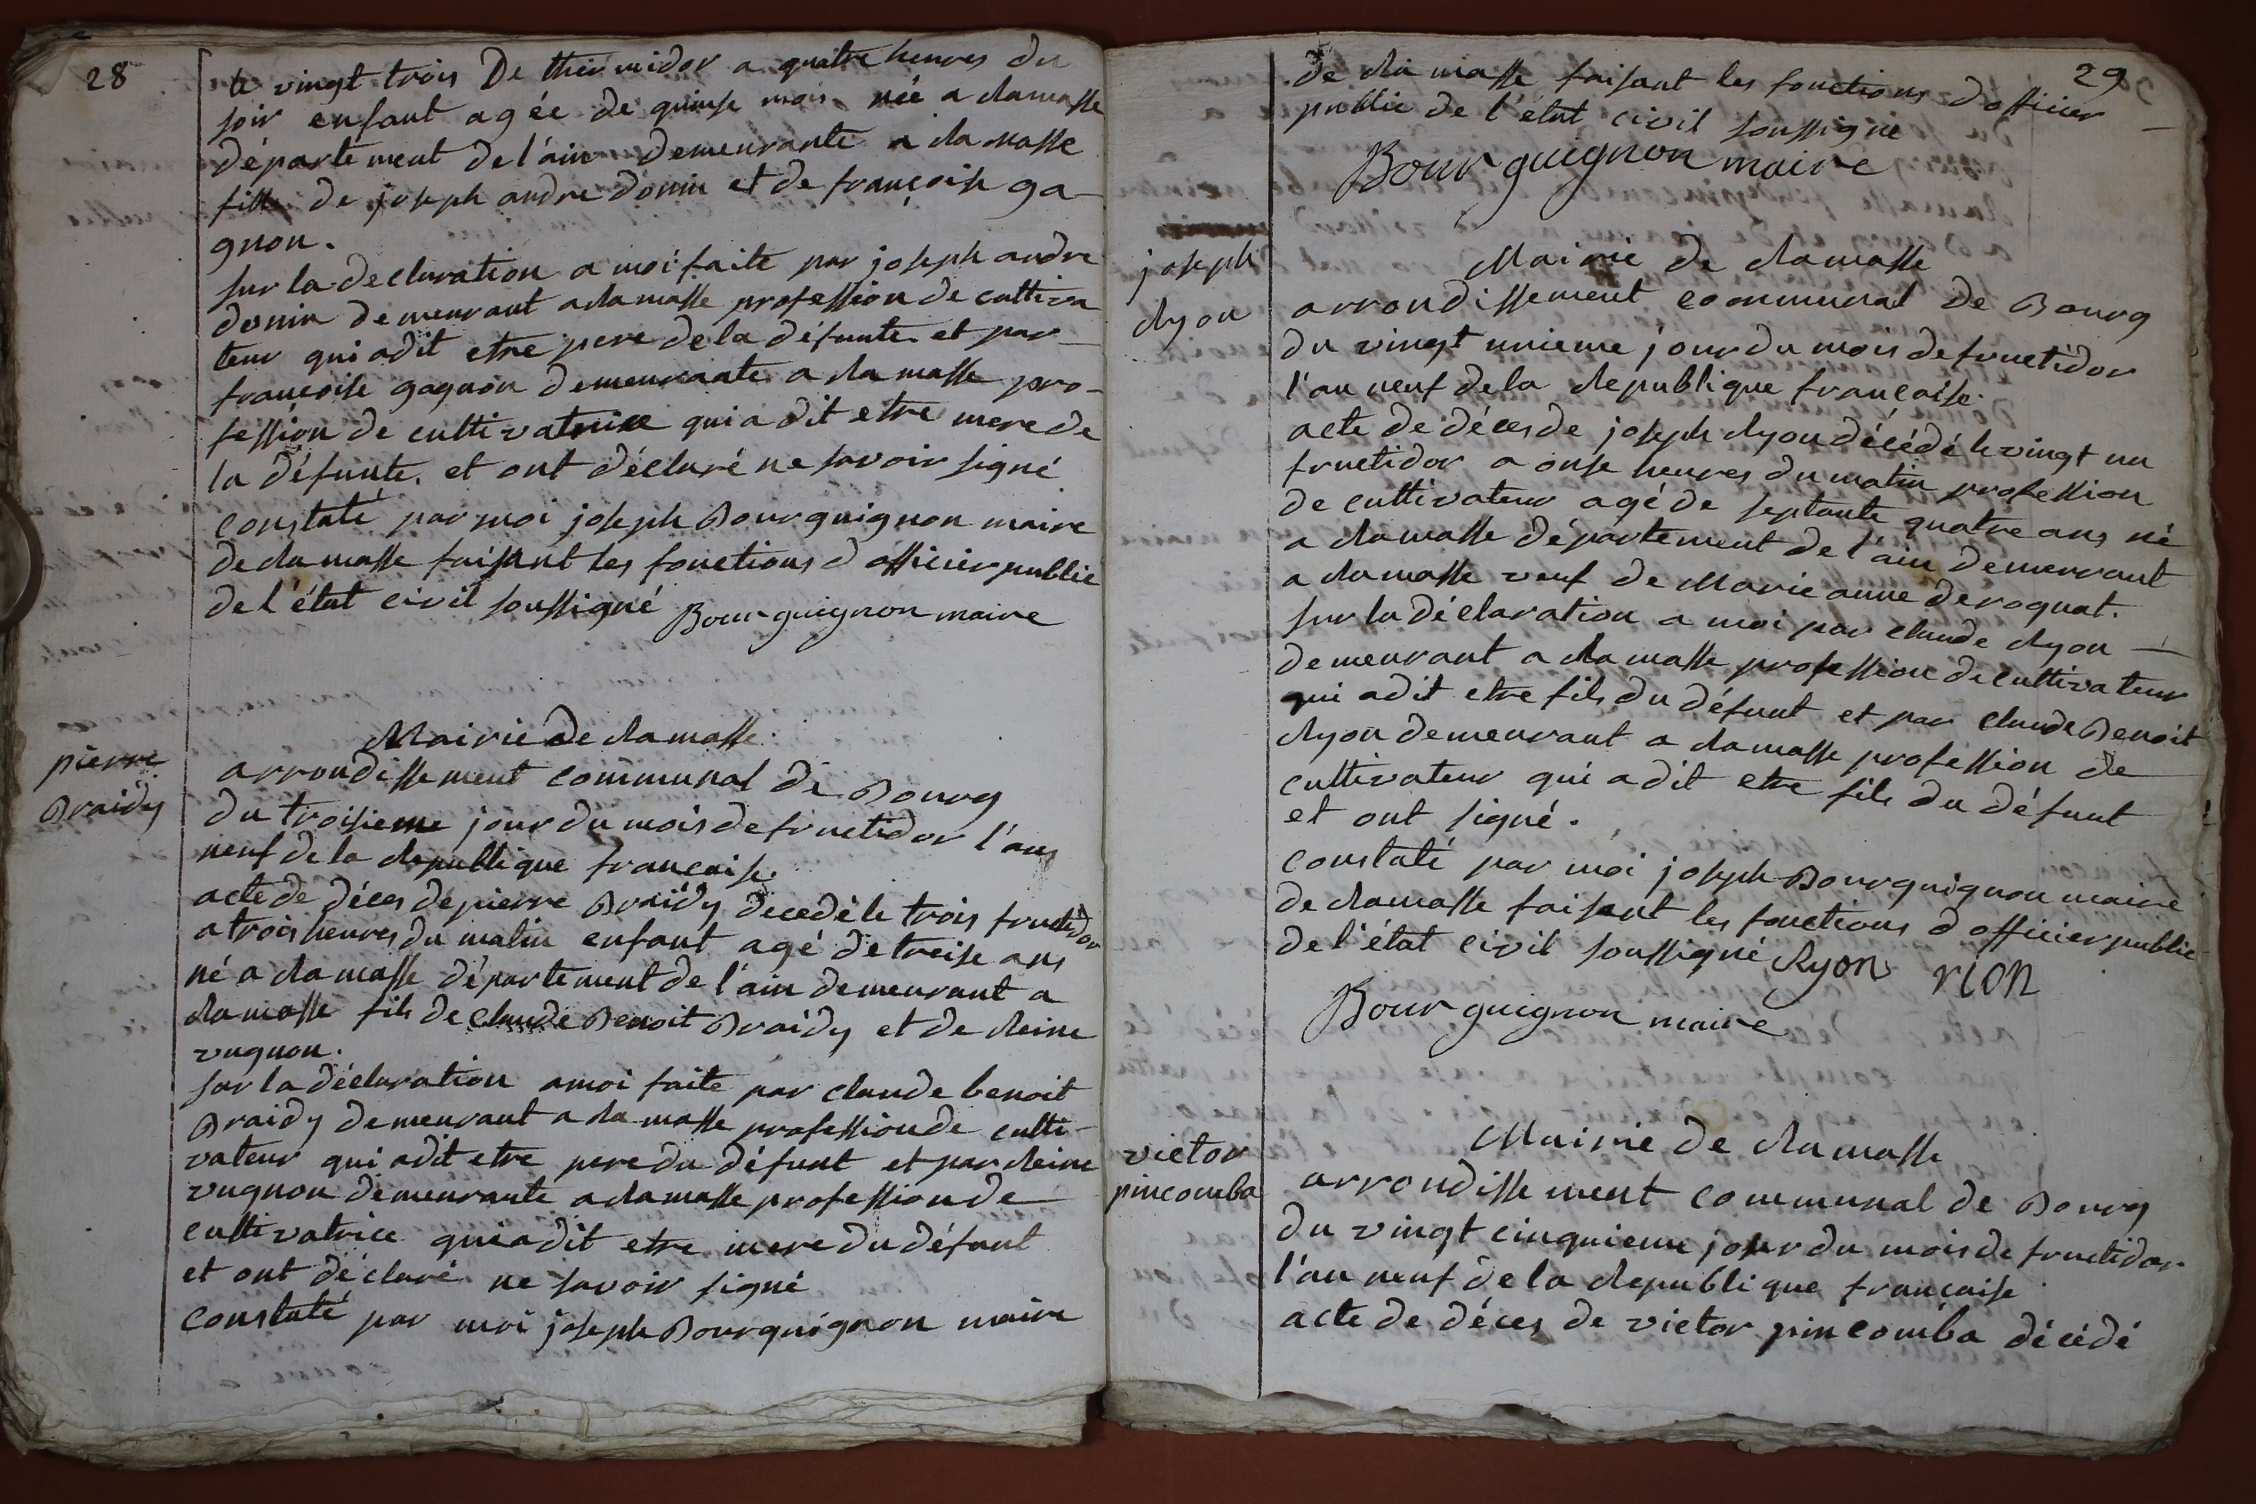 28
le vingt trois De thermidor a quatre heures du
soir enfant agée de quinse mois née a Ramasse
département de l'ain demeurante a Ramasse
fille de joseph andre donin et de françoise ga-
gnon.
sur la declaration a moi faite par joseph andre
donin demeurant a Ramasse profession de cultiva
teur qui adit etre pere de la défunte et par
françoise gagnon demeurante a Ramasse pro-
fession de cultivatrice qui a dit etre mere de
la défunte. et ont déclaré ne savoir signé
constaté par moi joseph Bourguignon maire
de Ramasse faisant les fonctions d officier public
de l'état civil soussigné Bourguignon maire
pierre
Braidy
Mairie de Ramasse.
arrondissement communal de Bourg
du troisieme jour du mois de fructidor l'an
neuf de la Republique francaise.
acte de déces de pierre Braidy decedé le trois fructidor
a trois heures du matin enfant agé de treise ans
né a Ramasse département de l'ain demeurant a
Ramasse fils de claude Benoit Braidy et de Reine
vugnon.
sur la déclaration amoi faite par claude benoit
Braidy demeurant a Ramasse profession de culti-
vateur qui adit etre pere du défunt et par Reine
vugnon demeurante a Ramasse profession de
cultivatrice qui adit etre mere du défunt
et ont déclaré ne savoir signé
constaté par moi joseph Bourguignon maire
29
de Ramasse faisant les fonctions d officier
public de l'état civil soussigné
Bourguignon maire
joseph
Ryon
Mairie de Ramasse
arrondissement communal de Bourg
du vingt unieme jour du mois de fructidor
l'an neuf de la Republique francaise.
acte de déces de joseph Ryon décédé le vingt un
fructidor a onse heures du matin profession
de cultivateur agé de septante quatre ans né
a Ramasse département de l'ain demeurant
a Ramasse veuf de Marie anne deroguat.
sur la déclaration a moi par claude Ryon
demeurant a Ramasse profession de cultivateur
qui adit etre fils du défunt et par claude Benoit
Ryon demeurant a Ramasse profession de
cultivateur qui adit etre fils du défunt
et ont signé.
constaté par moi joseph Bourguignon maire
de Ramasse faisant les fonctions d officier public
de l'état civil soussigné Ryon rion
Bourguignon maire
victor
pincomba
Mairie de Ramasse
arrondissement communal de Bourg
du vingt cinquieme jour du mois de fructidor
l'an neuf de la Republique francaise
acte de déces de victor pincomba décédé